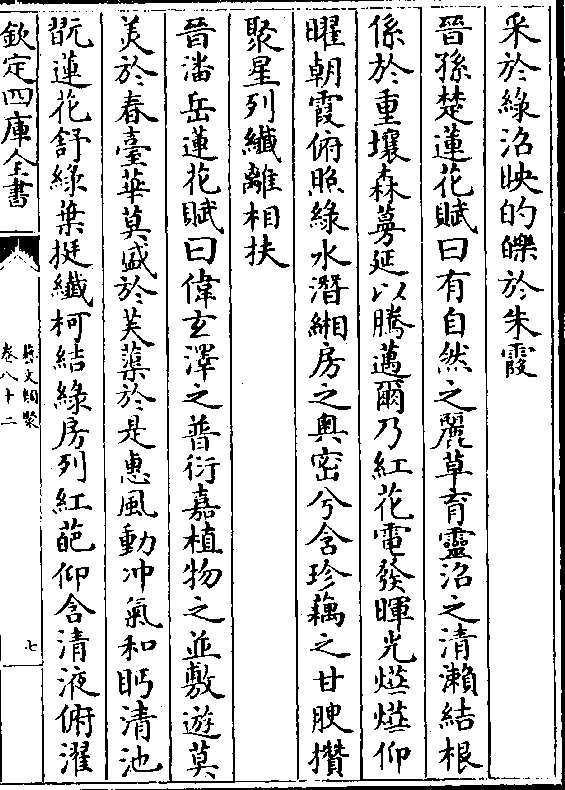 采於綠沼映的皪於朱霞
晉孫楚蓮花賦曰有自然之麗草育靈沼之清瀨結根
係於重壤森蔓延以騰邁爾乃紅花電發暉光燁燁仰
曜朝霞俯照綠水潛緗房之奧密兮含珍藕之甘腴攢
聚星列纖離相扶
晉潘岳蓮花賦曰偉玄澤之普衍嘉植物之並敷遊莫
美於春臺華莫盛於芙蕖於是惠風動冲氣和眄清池
翫蓮花舒綠葉挺纖柯結綠房列紅葩仰含清液俯濯
欽定四庫全書
藝文類聚
卷八十二
七